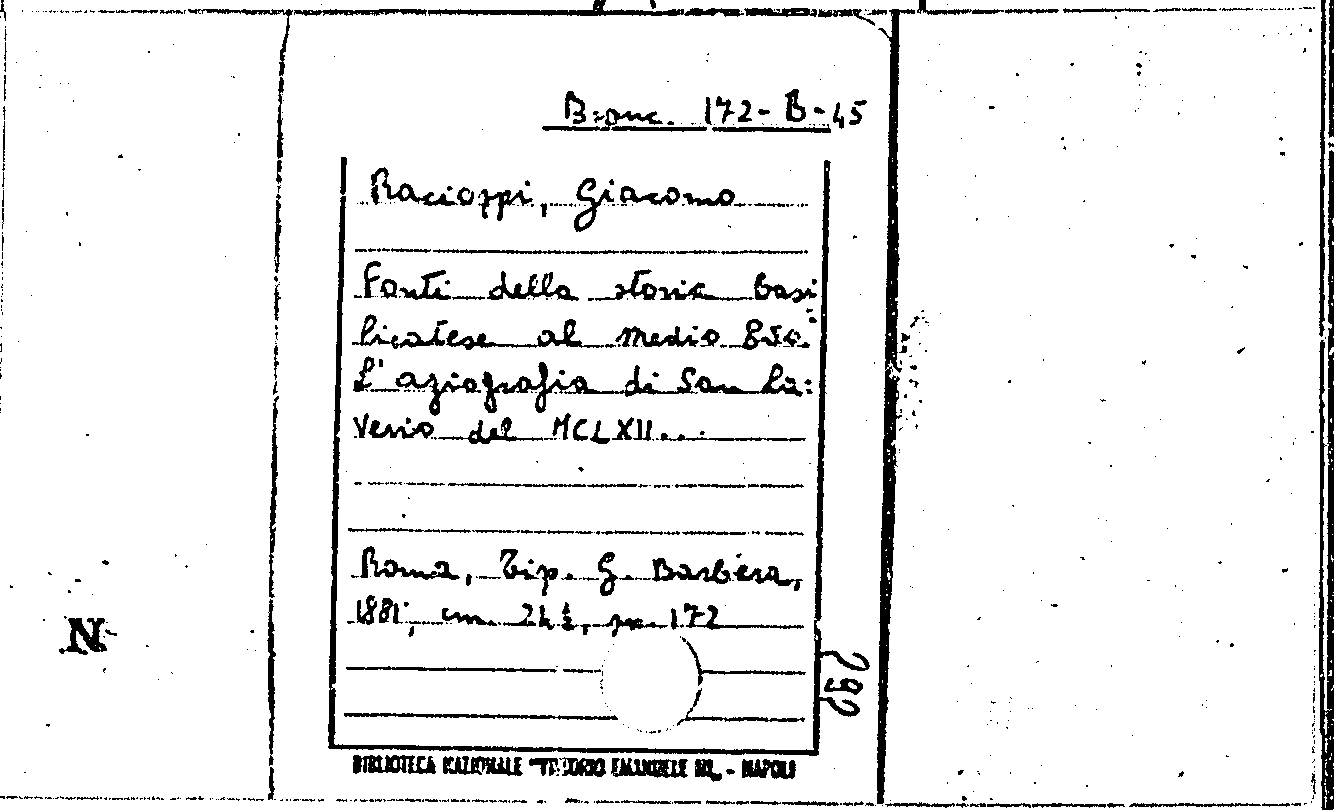 Branc. 172-B-45
Racioppi, Giacomo
Fonti della storia basi
licatese al medio Evo.
L'agiografia di San La:
verio del MCLXII...
Roma, Tip. G. Barbèra,
1881, cm. 24½, pp. 172
292
N
BIBLIOTECA NAZIONALE "VITTORIO EMANUELE III" - NAPOLI